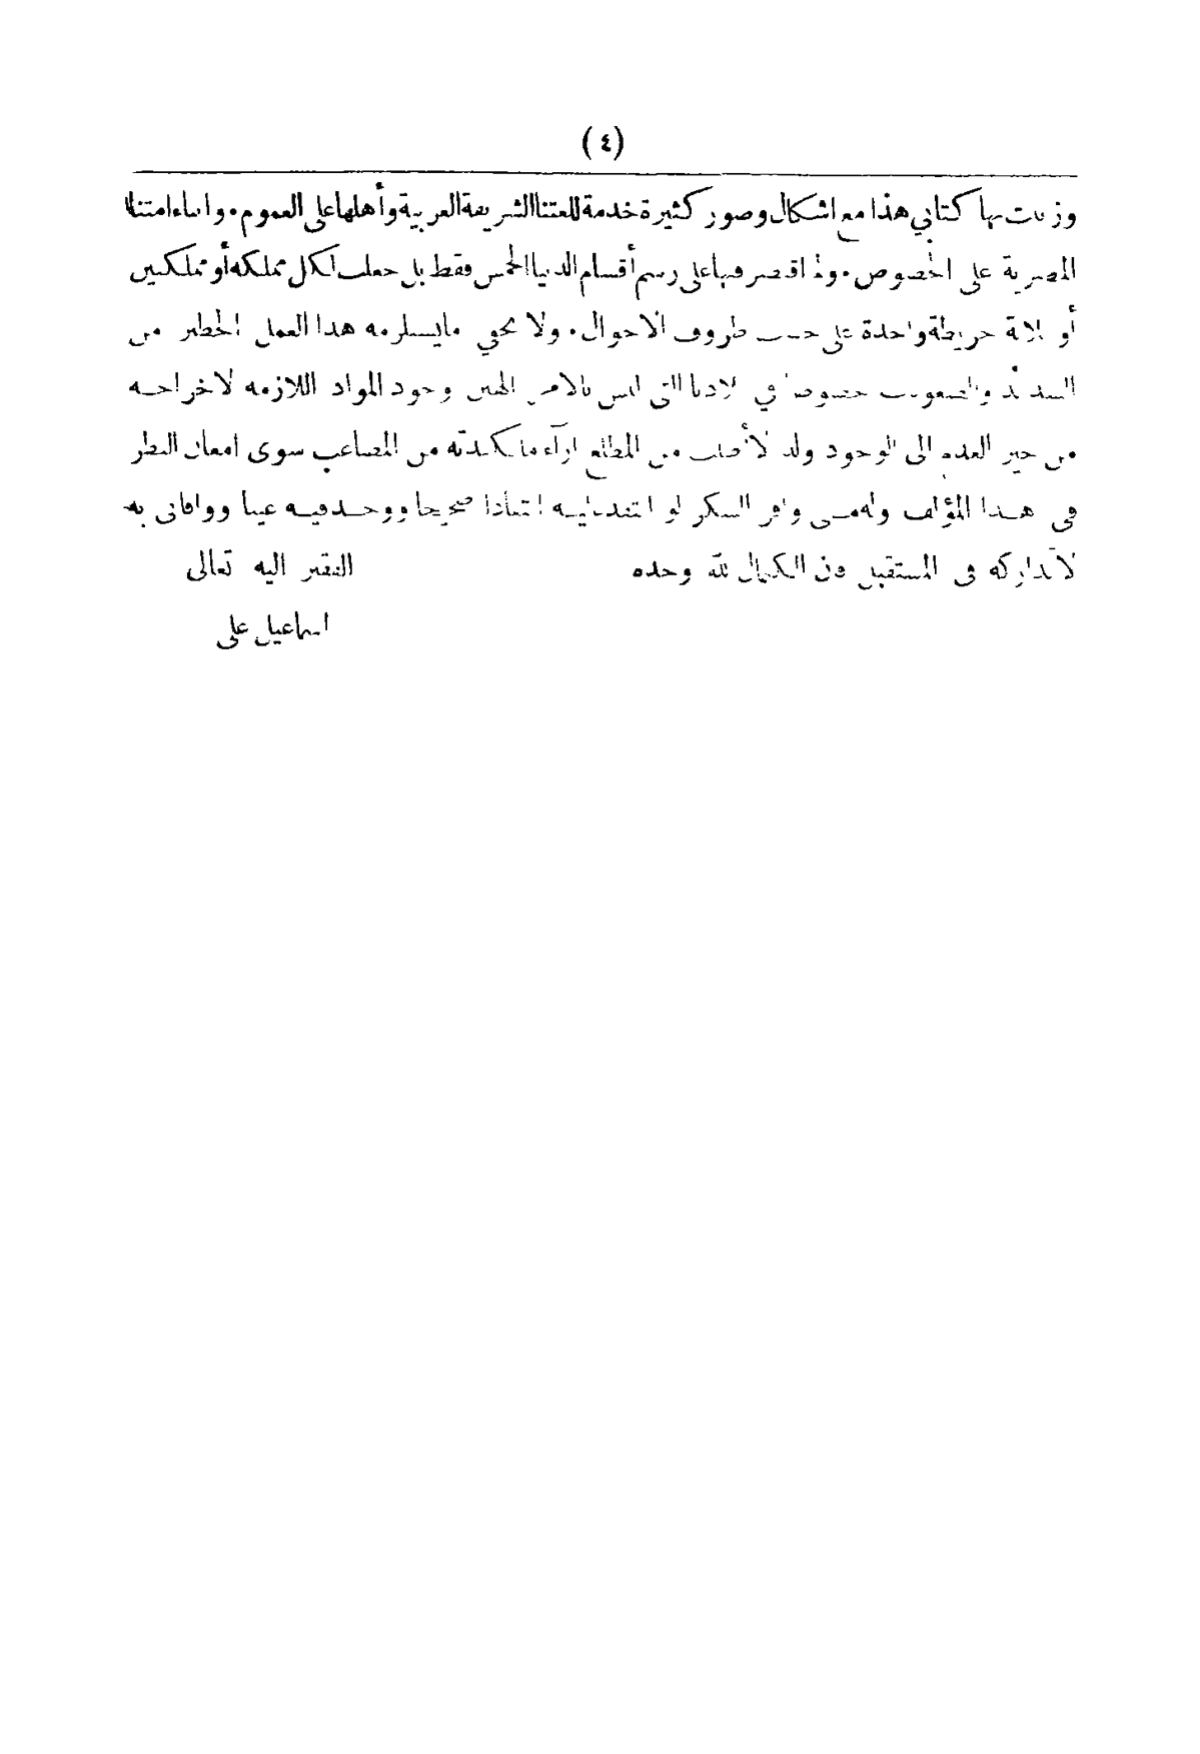 (٤)
وزينت بها كتابي هذا مع اشكال وصور كثيرة خدمة للغتنا الشريفة العربية وأهلها على العموم. وابناء امتنا
المصرية على الخصوص. ولم اقتصر فيها على رسم أقسام الدنيا الخمس فقط بل جعلت لكل مملكة أو مملكتين
أو ثلاثة خريطة واحدة على حسب ظروف الاحوال. ولا يخفى مايستلزمه هذا العمل الخطير من
الشدائد والصعوبات خصوصا في بلادنا التى ليس بالامر الهين وجود المواد اللازمه لاخراجه
من حيز العدم الى الوجود ولا أطلب من المطلع ازاء ما تكبدته من المصاعب سوى امعان النظر
فى هذا المؤلف وله منى وافر الشكر لو انتقد عليه انتقادا صحيحا ووجد فيه عيبا ووافانى به
لأتداركه فى المستقبل فان الكمال لله وحده الفقير اليه تعالى
اسماعيل على